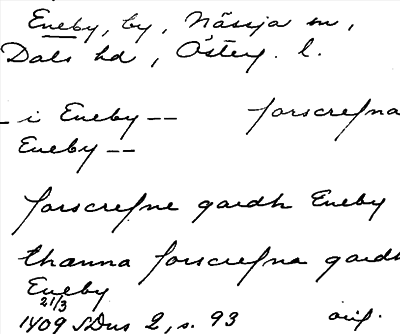 Eneby, by, Nässja sn,
Dals hd, Österg. l.
- i Eneby -- forscrefna
Eneby --
forscrefne gardh Eneby
thanna forscrefna gardh
Eneby
21/3
1409 SDns 2, s. 93 orig.